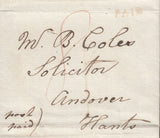 Mr. B. Coles
Solicitor
Andover
Hants
post
paid